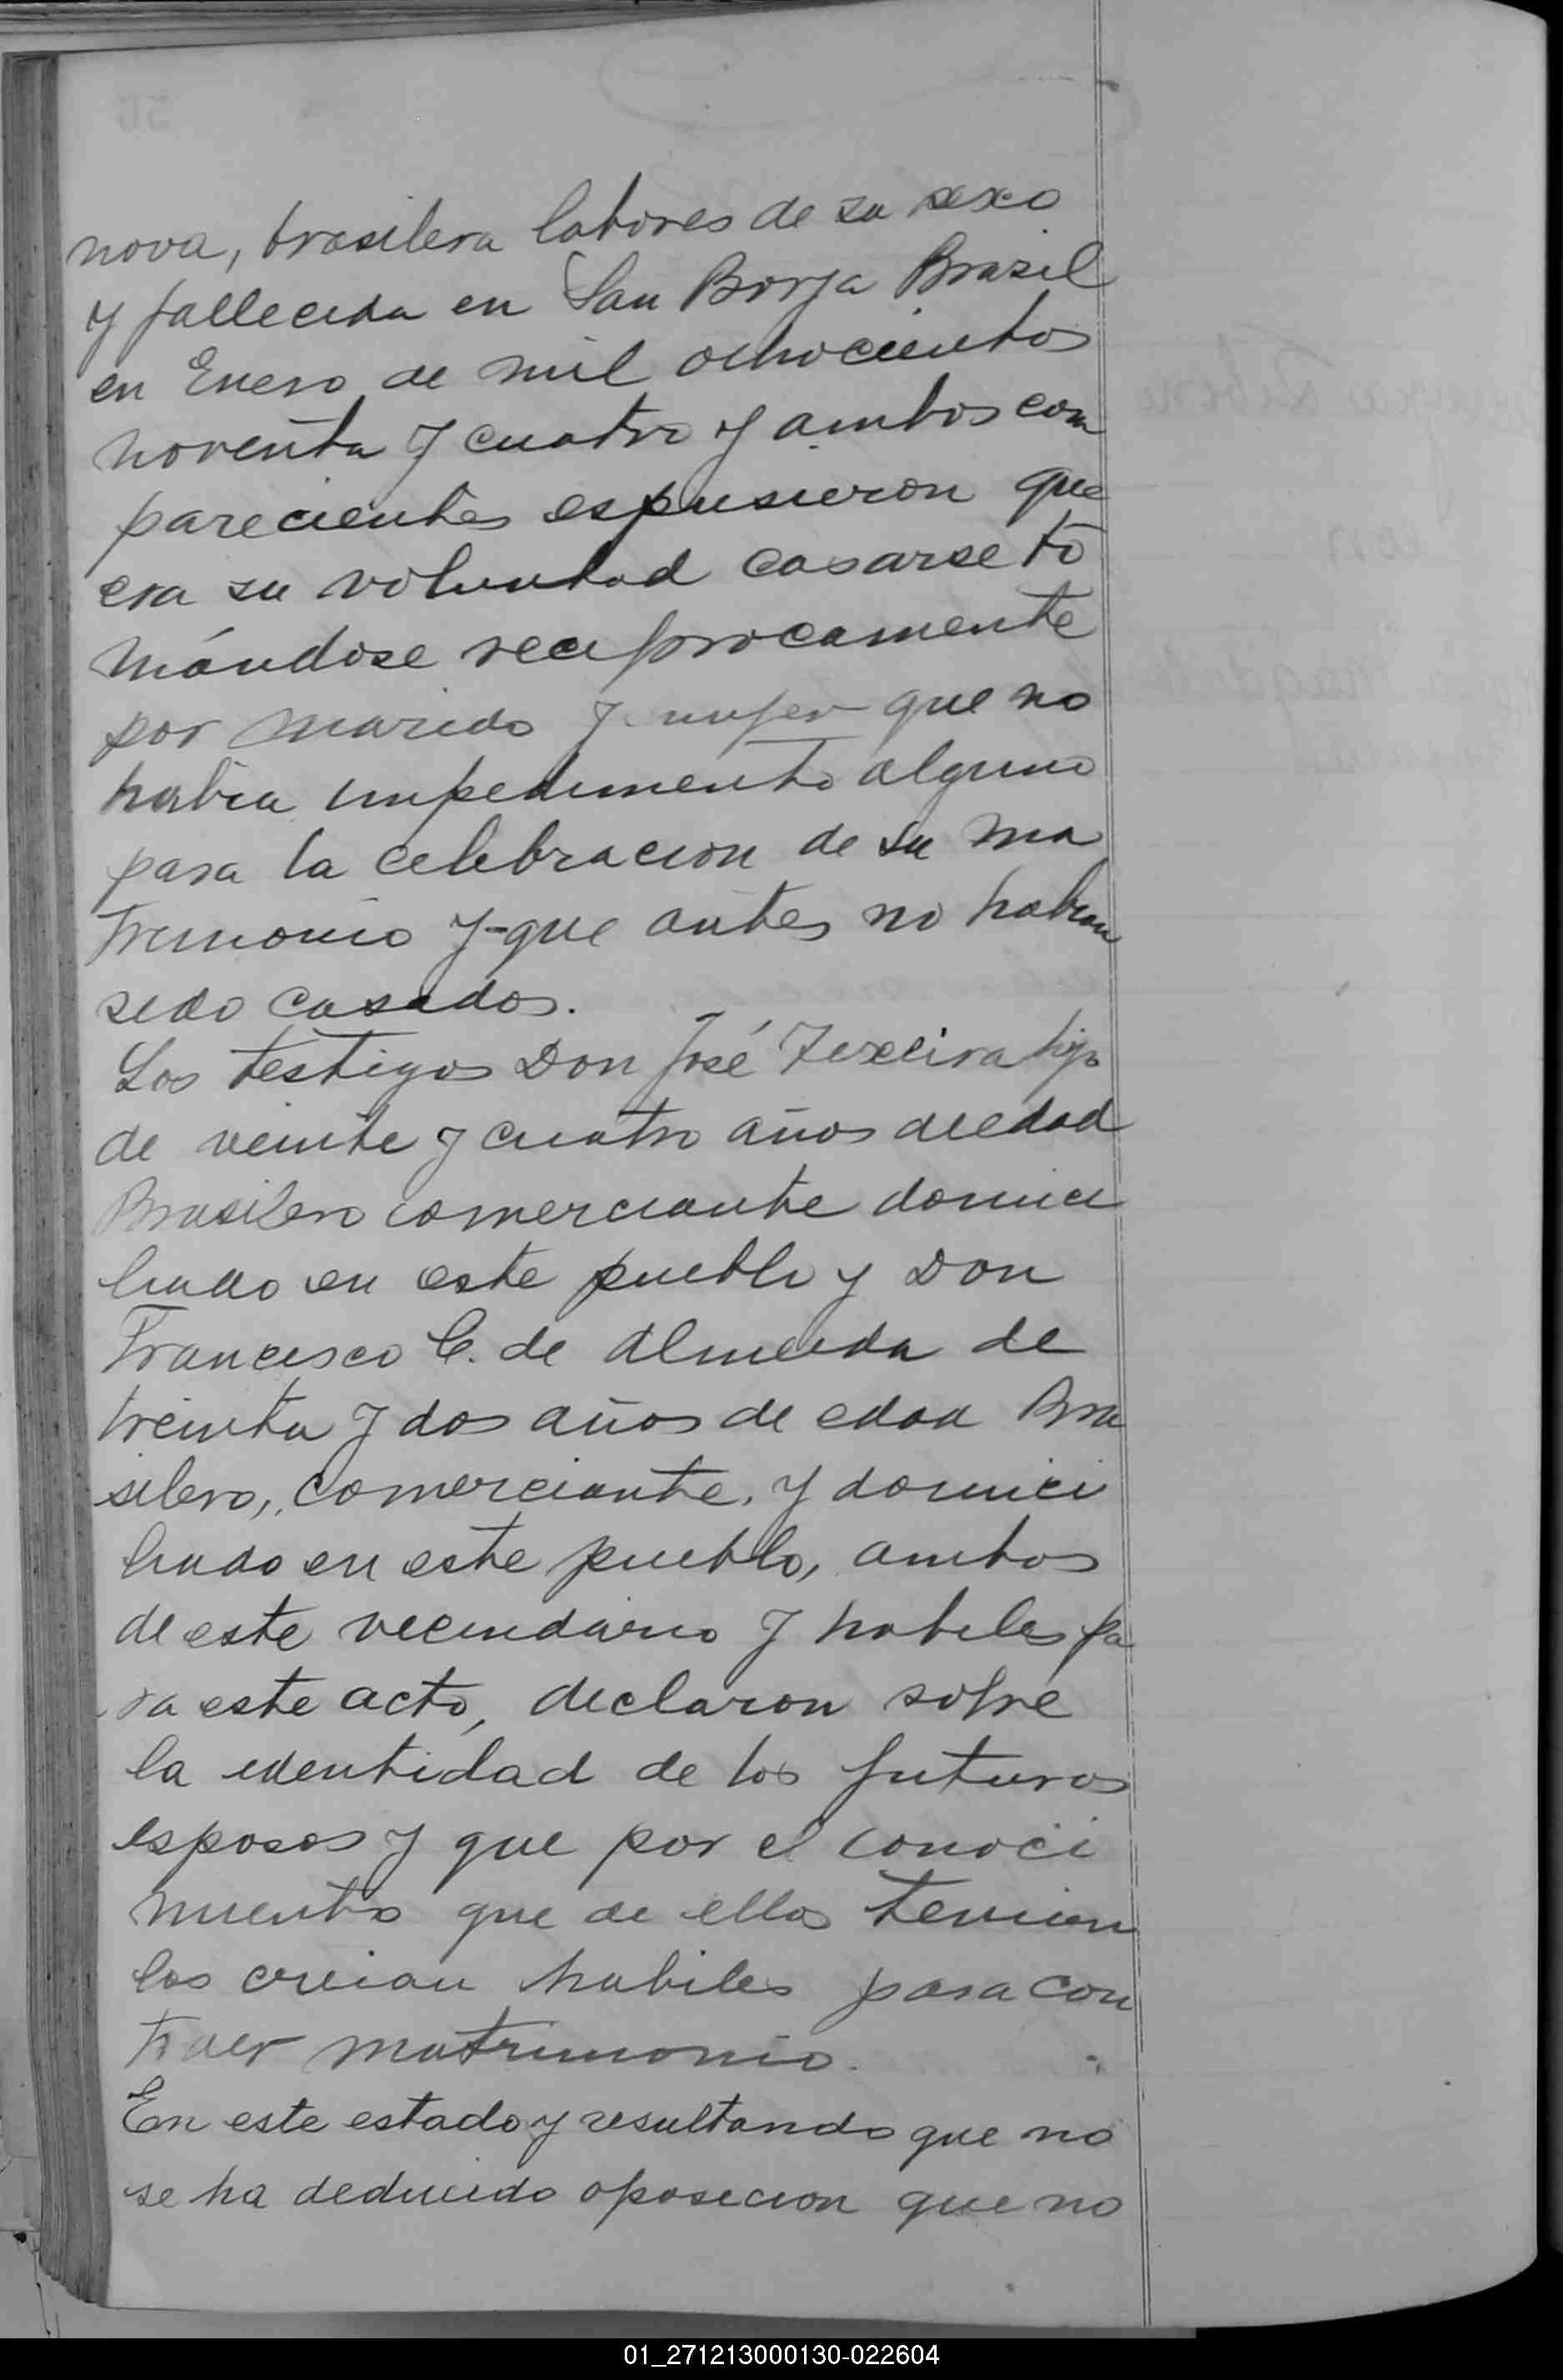 nova, brasilera labores de su sexo
y fallecida en San Borja Brazil
en Enero de mil ochocientos
noventa y cuatro y ambos com
parecientes espusieron que
era su voluntad casarse to
mándose reciprocamente
por marido y mujer que no
habia impedimento alguno
para la celebracion de su ma
trimonio y que antes no habian
sido casados.
Los testigos Don José Texeira hijo
de veinte y cuatro años de edad
Brasilero comerciante domici
liado en este pueblo y Don
Francisco C. de Almeida de
treinta y dos años de edad Bra
silero, comerciante, y domici
liado en este pueblo, ambos
de este vecindario y habiles pa
ra este acto, declaron sobre
la identidad de los futuros
esposos y que por el conoci
miento que de ellos tenian
los creian habiles para con
traer matrimonio.
En este estado y resultando que no
se ha deducido oposicion que no
01_271213000130-022604